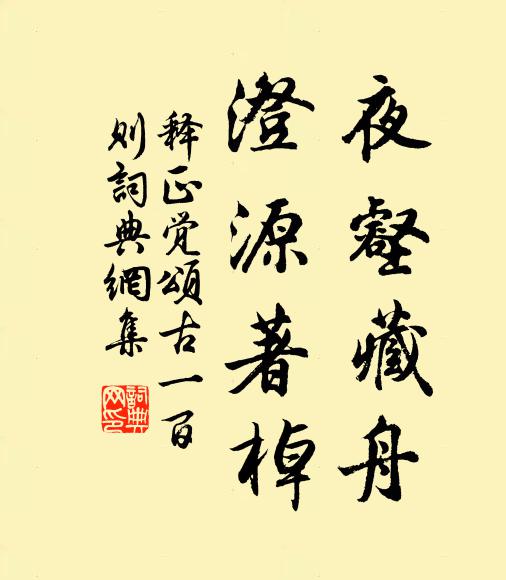 夜壑藏舟
澄源著棹
释正觉颂古一百
则詞典網集
詞典
网印